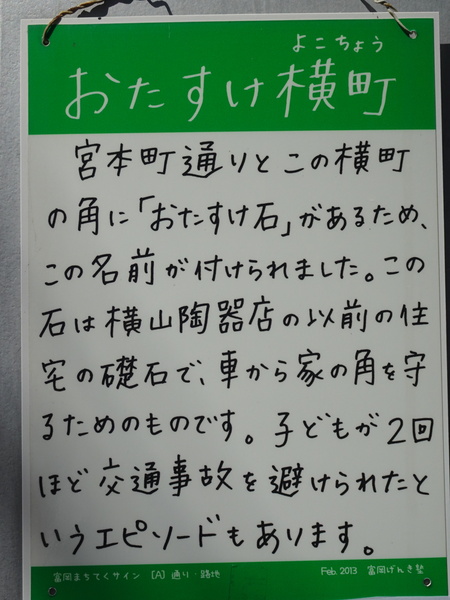 よこちょう
おたすけ横町
宮本町通りとこの横町
の角に「おたすけ石」があるため、
この名前が付けられました。この
石は横山陶器店の以前の住
宅の礎石で、車から家の角を守
るためのものです。子どもが2回
ほど交通事故を避けられたと
いうエピソードもあります。
富岡まちてくサイン [A] 通り・路地
Feb. 2013 富岡げんき塾